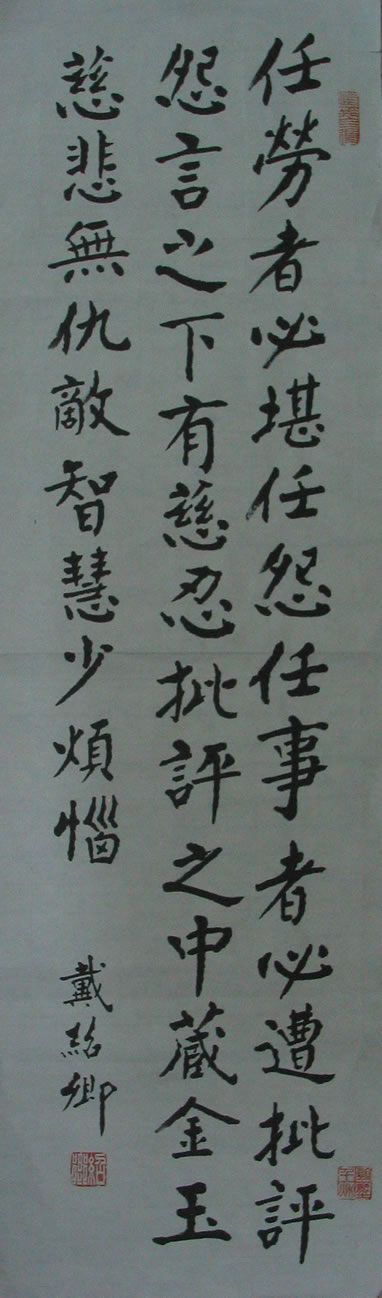 任勞者必堪任怨任事者必遭批評
怨言之下有慈忍批評之中藏金玉
慈悲無仇敵智慧少煩惱
戴紹卿